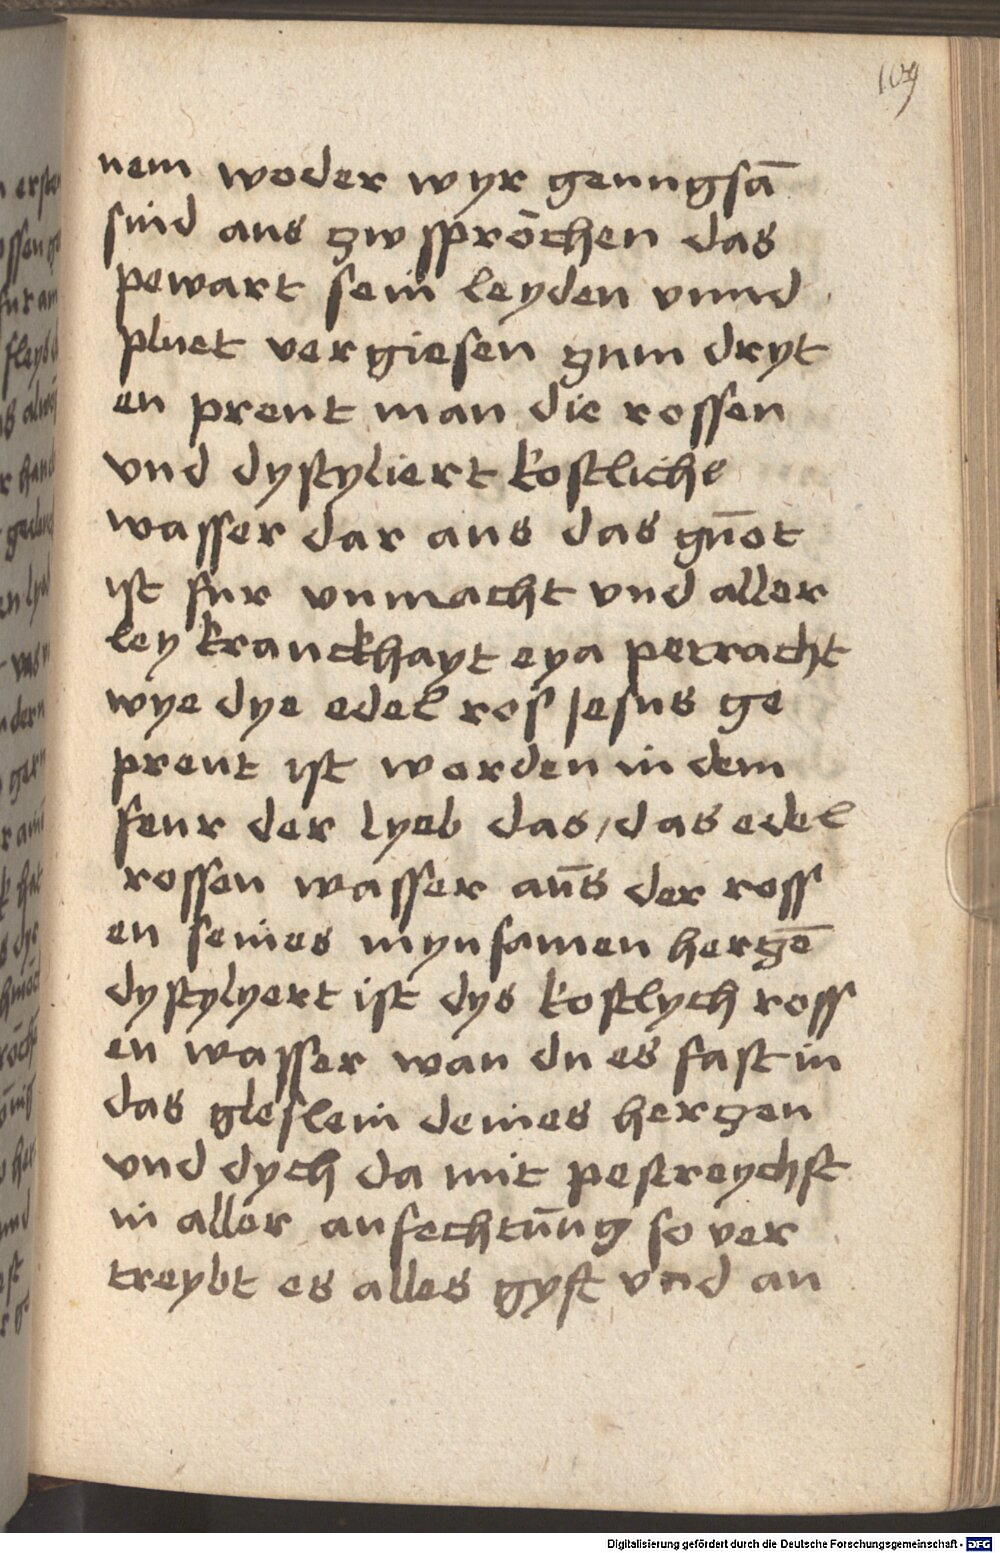 109
nem woder wyr genngsā
sind aus zw sprōchen das
pewart sein leyden vnnd
pluet vergiesen zum dryt
en prent man die rossen
vnd dystyliert kostliche
wasser dar aus das gūot
ist fur vnmacht vnd aller
ley kranckhayt eya petracht
wye dye edel ros Jesus ge
prent ist worden in dem
feur der lyeb das / das edel
rossen wasser aūs der ross
en seines mynsamen herzē
dystylyert ist dys kostlych ross
en wasser wan du es fast in
das gleslein deines herzen
vnd dych da mit pestreychst
in aller anfechtūng so ver
treybt es alles gyft vnd an
Digitalisierung gefördert durch die Deutsche Forschungsgemeinschaft - DFG